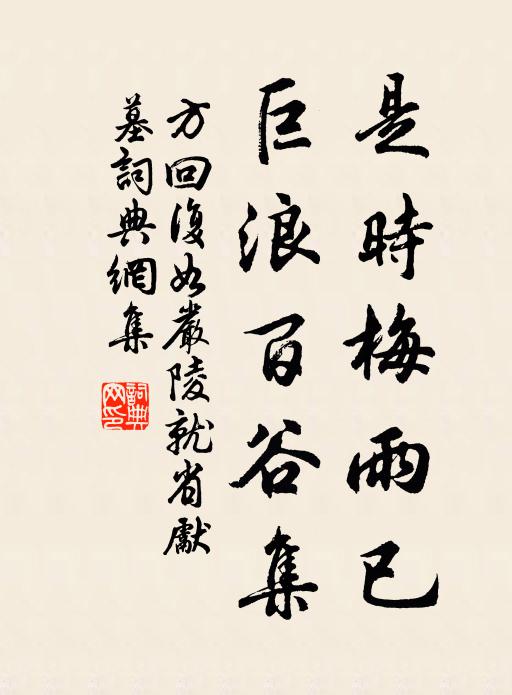 是時梅雨已
巨浪百谷集
方回復如嚴陵就省獻
墓詞典網集
詞典
网印